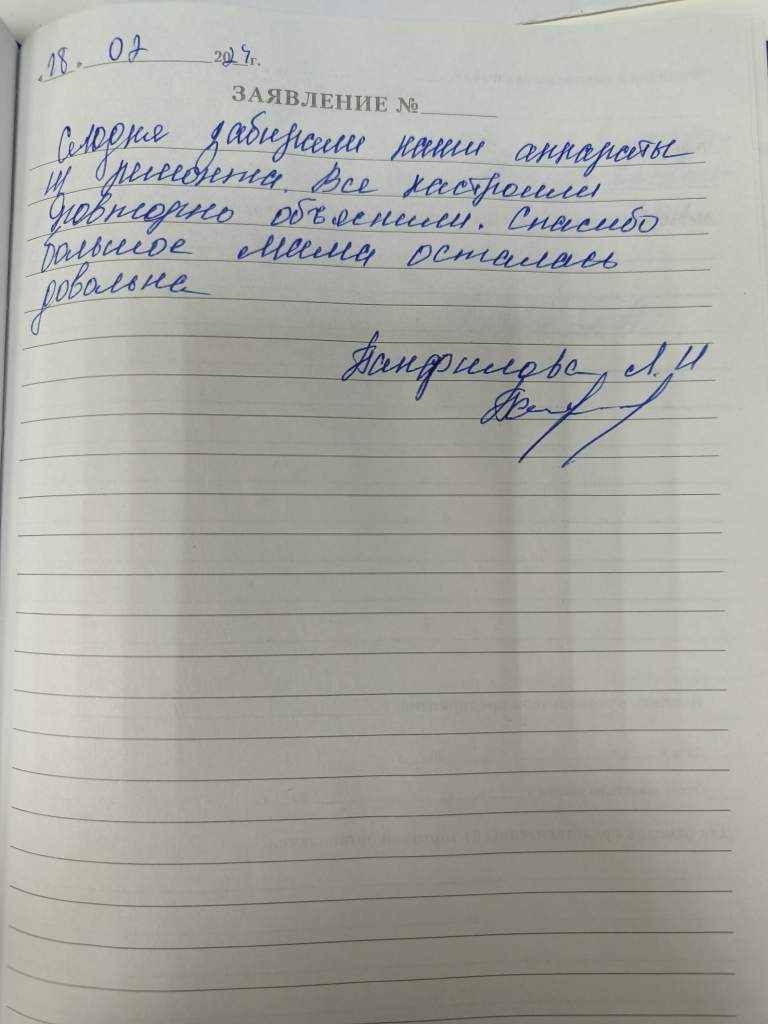 «18» 07 2024г.
ЗАЯВЛЕНИЕ №
Сегодня забирали наши аппараты
из ремонта. Все настроили
повторно объяснили. Спасибо
большое мама осталась
довольна
Панфилова Л.И